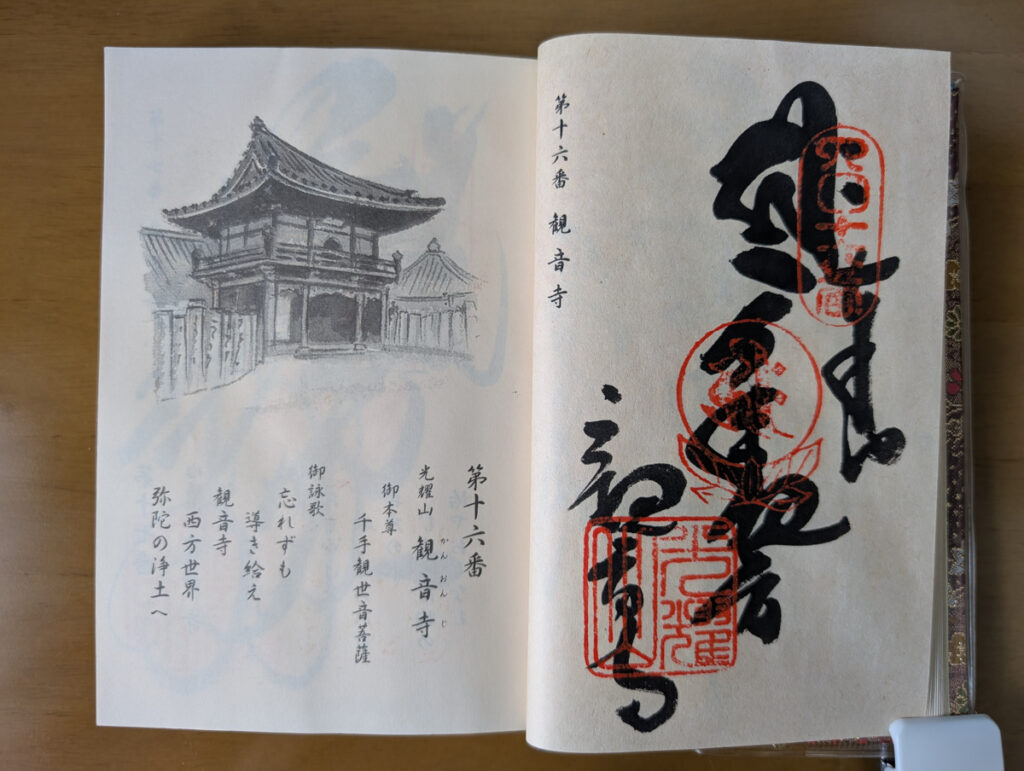 観音寺
光耀山
第十六番 観音寺
第十六番
光耀山 観音寺
かんおんじ
御本尊
千手観世音菩薩
御詠歌
忘れずも
導き給え
観音寺
西方世界
弥陀の浄土へ